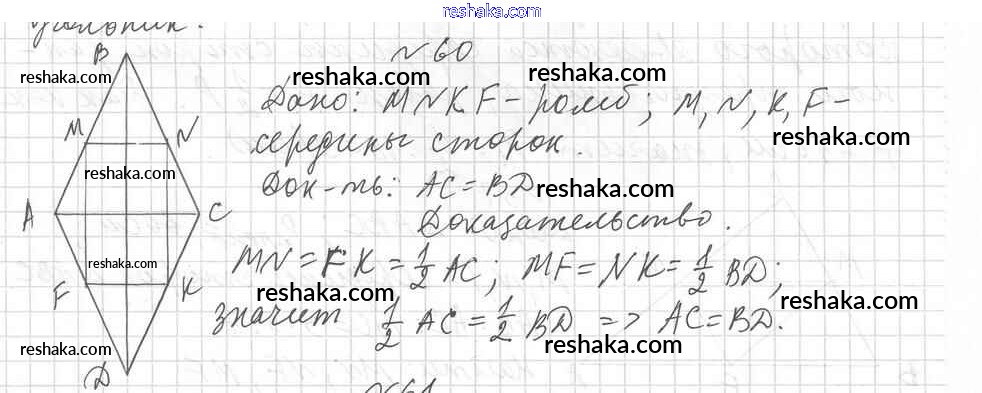 reshaka.com
угольник.
№60
Дано: MNKF - ромб; M, N, K, F -
середины сторон.
Док-ть: AC = BD
Доказательство.
MN = FK = 1/2 AC; MF = NK = 1/2 BD;
значит 1/2 AC = 1/2 BD => AC = BD.
B
M
N
A
C
F
K
D
№61
reshaka.com
reshaka.com
reshaka.com
reshaka.com
reshaka.com
reshaka.com
reshaka.com
reshaka.com
reshaka.com
reshaka.com
reshaka.com
reshaka.com